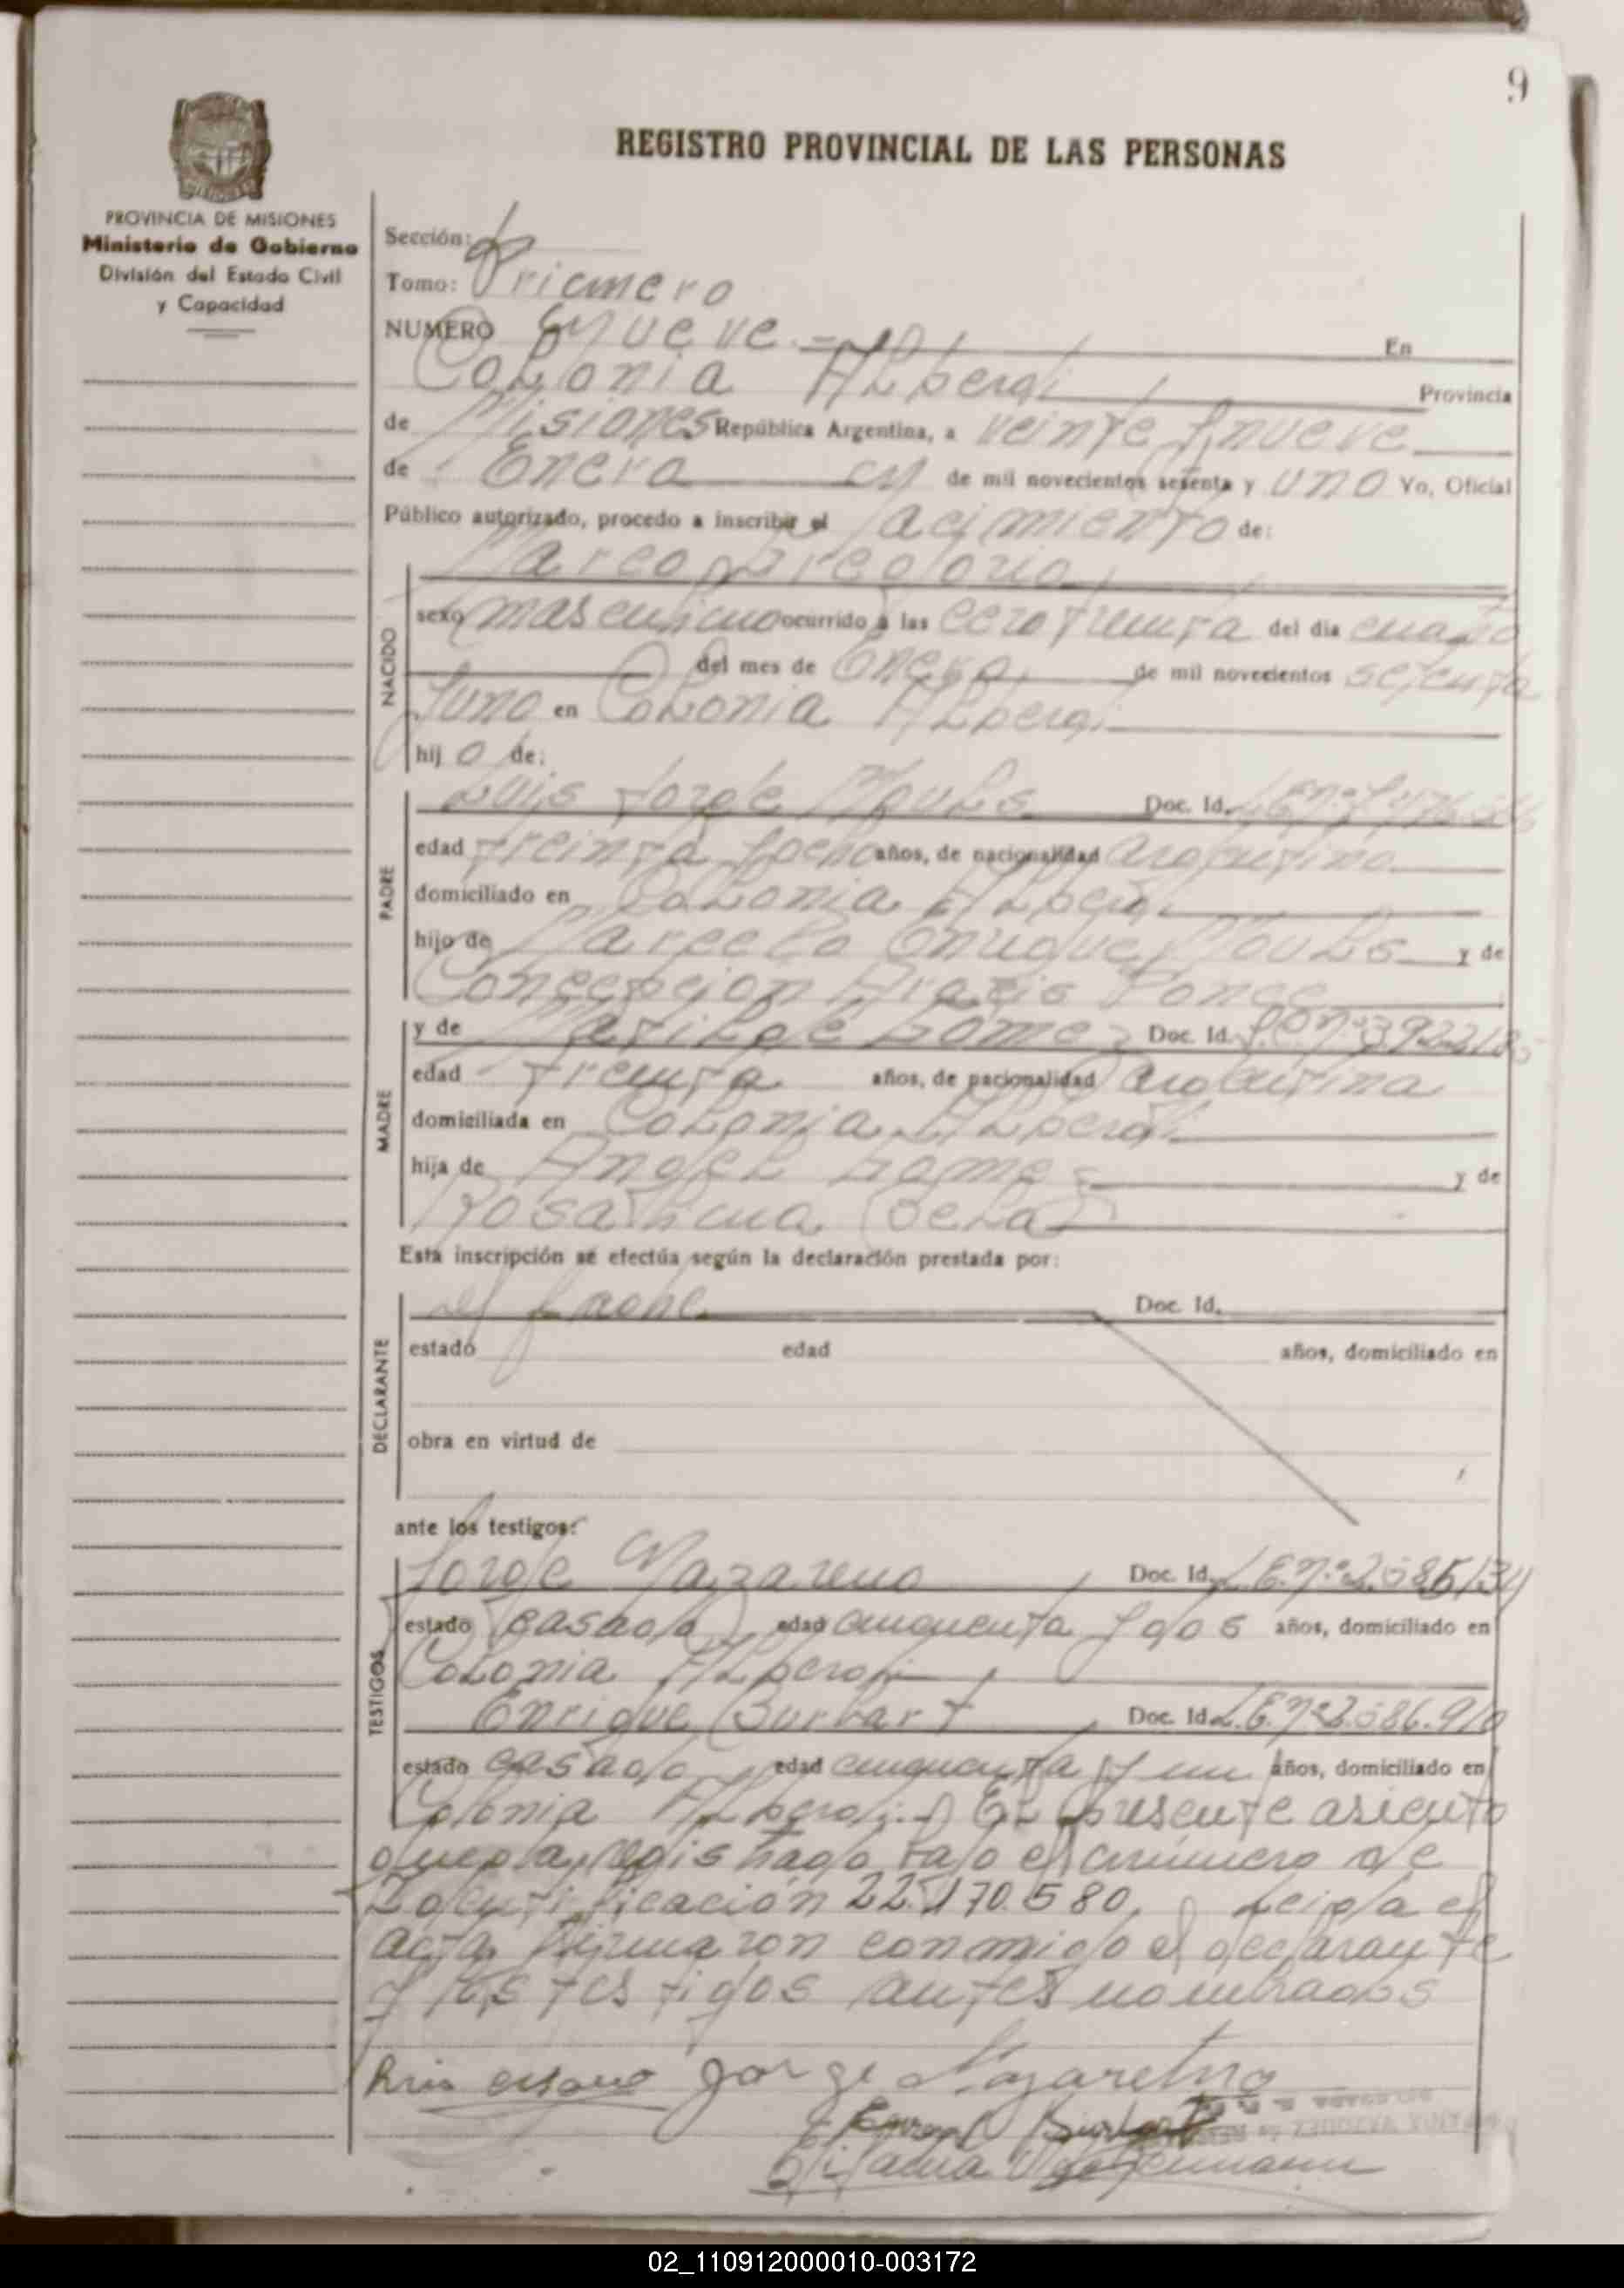 9
REGISTRO PROVINCIAL DE LAS PERSONAS
PROVINCIA DE MISIONES
Ministerio de Gobierno
División del Estado Civil
y Capacidad
Sección:
Tomo: Primero
NUMERO Nueve.= En
Colonia Alberdi Provincia
de Misiones República Argentina, a veinte y nueve
de Enero de mil novecientos sesenta y uno Yo, Oficial
Público autorizado, procedo a inscribir el Nacimiento de:
Gregorio
NACIDO
sexo masculino ocurrido a las cero treinta del día cuatro
del mes de Enero de mil novecientos setenta
y uno en Colonia Alberdi
hijo de:
PADRE
Luis Jorge Doc. Id. L.E.nº
edad treinta y ocho años, de nacionalidad argentino
domiciliado en Colonia Alberdi
hijo de Marcelo Enrique y de
Concepcion Ponce
MADRE
y de Matilde Gomez Doc. Id. nº 3922185
edad treinta años, de nacionalidad argentina
domiciliada en Colonia Alberdi
hija de Angel Gomez y de
Rosalina
Esta inscripción se efectúa según la declaración prestada por:
DECLARANTE
el padre Doc. Id.
estado edad años, domiciliado en
obra en virtud de
ante los testigos:
TESTIGOS
Jorge Nazareno Doc. Id. L.E.nº
estado casado edad cincuenta y dos años, domiciliado en
Colonia Alberdi
Enrique Burkart Doc. Id. L.E.nº
estado casado edad cincuenta y un años, domiciliado en
Colonia Alberdi.- El presente asiento
queda registrado bajo el número de
Identificación 22.170.580, Leida el
acta firmaron conmigo el declarante
y los testigos antes nombrados
Jorge Nazareno
02_110912000010-003172